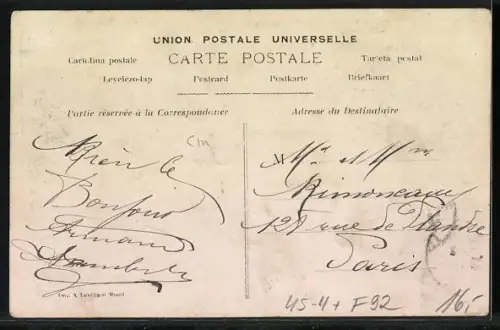 UNION POSTALE UNIVERSELLE
CARTE POSTALE
Cartolina postale
Tarjeta postal
Levelezo-lap
Postcard
Postkarte
Briefkaart
Partie réservée à la Correspondance
Adresse du Destinataire
Bonjour
Armand
M
Mr et Mme
rue de Flandre
Paris
45-4+ F92
16,-